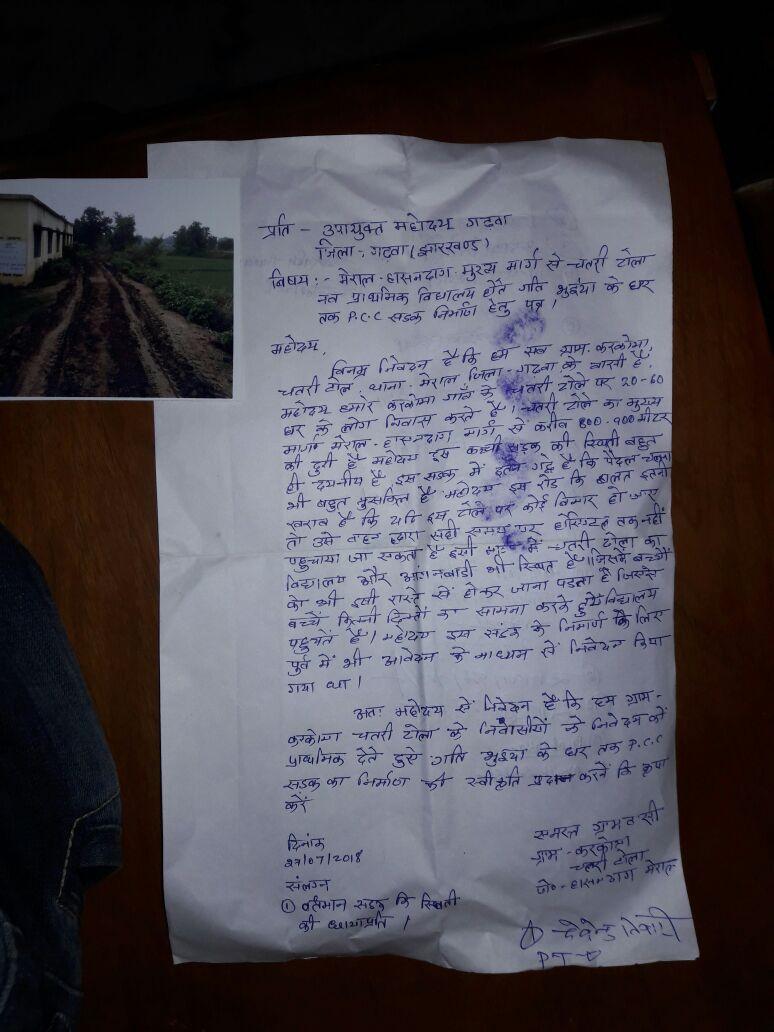 प्रति - उपायुक्त महोदय गढ़वा
जिला - गढ़वा (झारखण्ड)
बिषय :- मेराल-हासनदाग मुख्य मार्ग से चतरी टोला
नव प्राथमिक विद्यालय होते गति भुईया के घर
तक P.C.C सडक निर्माण हेतु पत्र।
महोदय,
बिनम्र निवेदन है कि हम सब ग्राम-करकोमा,
चतरी टोल, थाना-मेराल, जिला-गढ़वा के वासी है,
महोदय हमारे करकोमा गाँव के चतरी टोले पर 20-60
घर के लोग निवास करते है। चतरी टोले का मुख्य
मार्ग मेराल-हासनदाग मार्ग से करीब 800-900 मीटर
की दुरी है महोदय इस कच्ची सडक की स्थिती बहुत
ही दयनीय है, इस सडक में इतने गड्ढे है कि पैदल चलना
भी बहुत मुसकिल है महोदय इस रोड कि हालत इतनी
खराब है कि यदि इस टोले पर कोई बिमार हो जाए
तो उसे वाहन द्वारा सही समय पर हॉस्पिटल तक नहीं
पहुचाया जा सकता है इसी में चतरी टोला का
विद्यालय और आगनबाडी भी स्थित है। जिसमें बच्चों
को भी इसी रास्ते से होकर जाना पडता है जिससे
बच्चें दिक्कतों का सामना करके हुये विद्यालय
पहुचते है। महोदय इस सडक के निर्माण के लिए
पुर्व में भी आवेदन के माध्यम से निवेदन किया
गया था।
अतः महोदय से निवेदन है कि हम ग्राम-
करकोमा चतरी टोला के निवासीयों के निवेदन को
प्राथमिक देते हुऐ गति भुईया के घर तक P.C.C
सडक का निर्माण की स्वीकृति प्रदान करने कि कृपा
करें
दिनांक
27/07/2018
संलग्न
① वर्तमान सडक कि स्थिती
की छायाप्रति।
समस्त ग्रामवासी
ग्राम - करकोमा
चतरी टोला
पो०-हासनदाग मेराल
① देवेन्द्र तिवारी